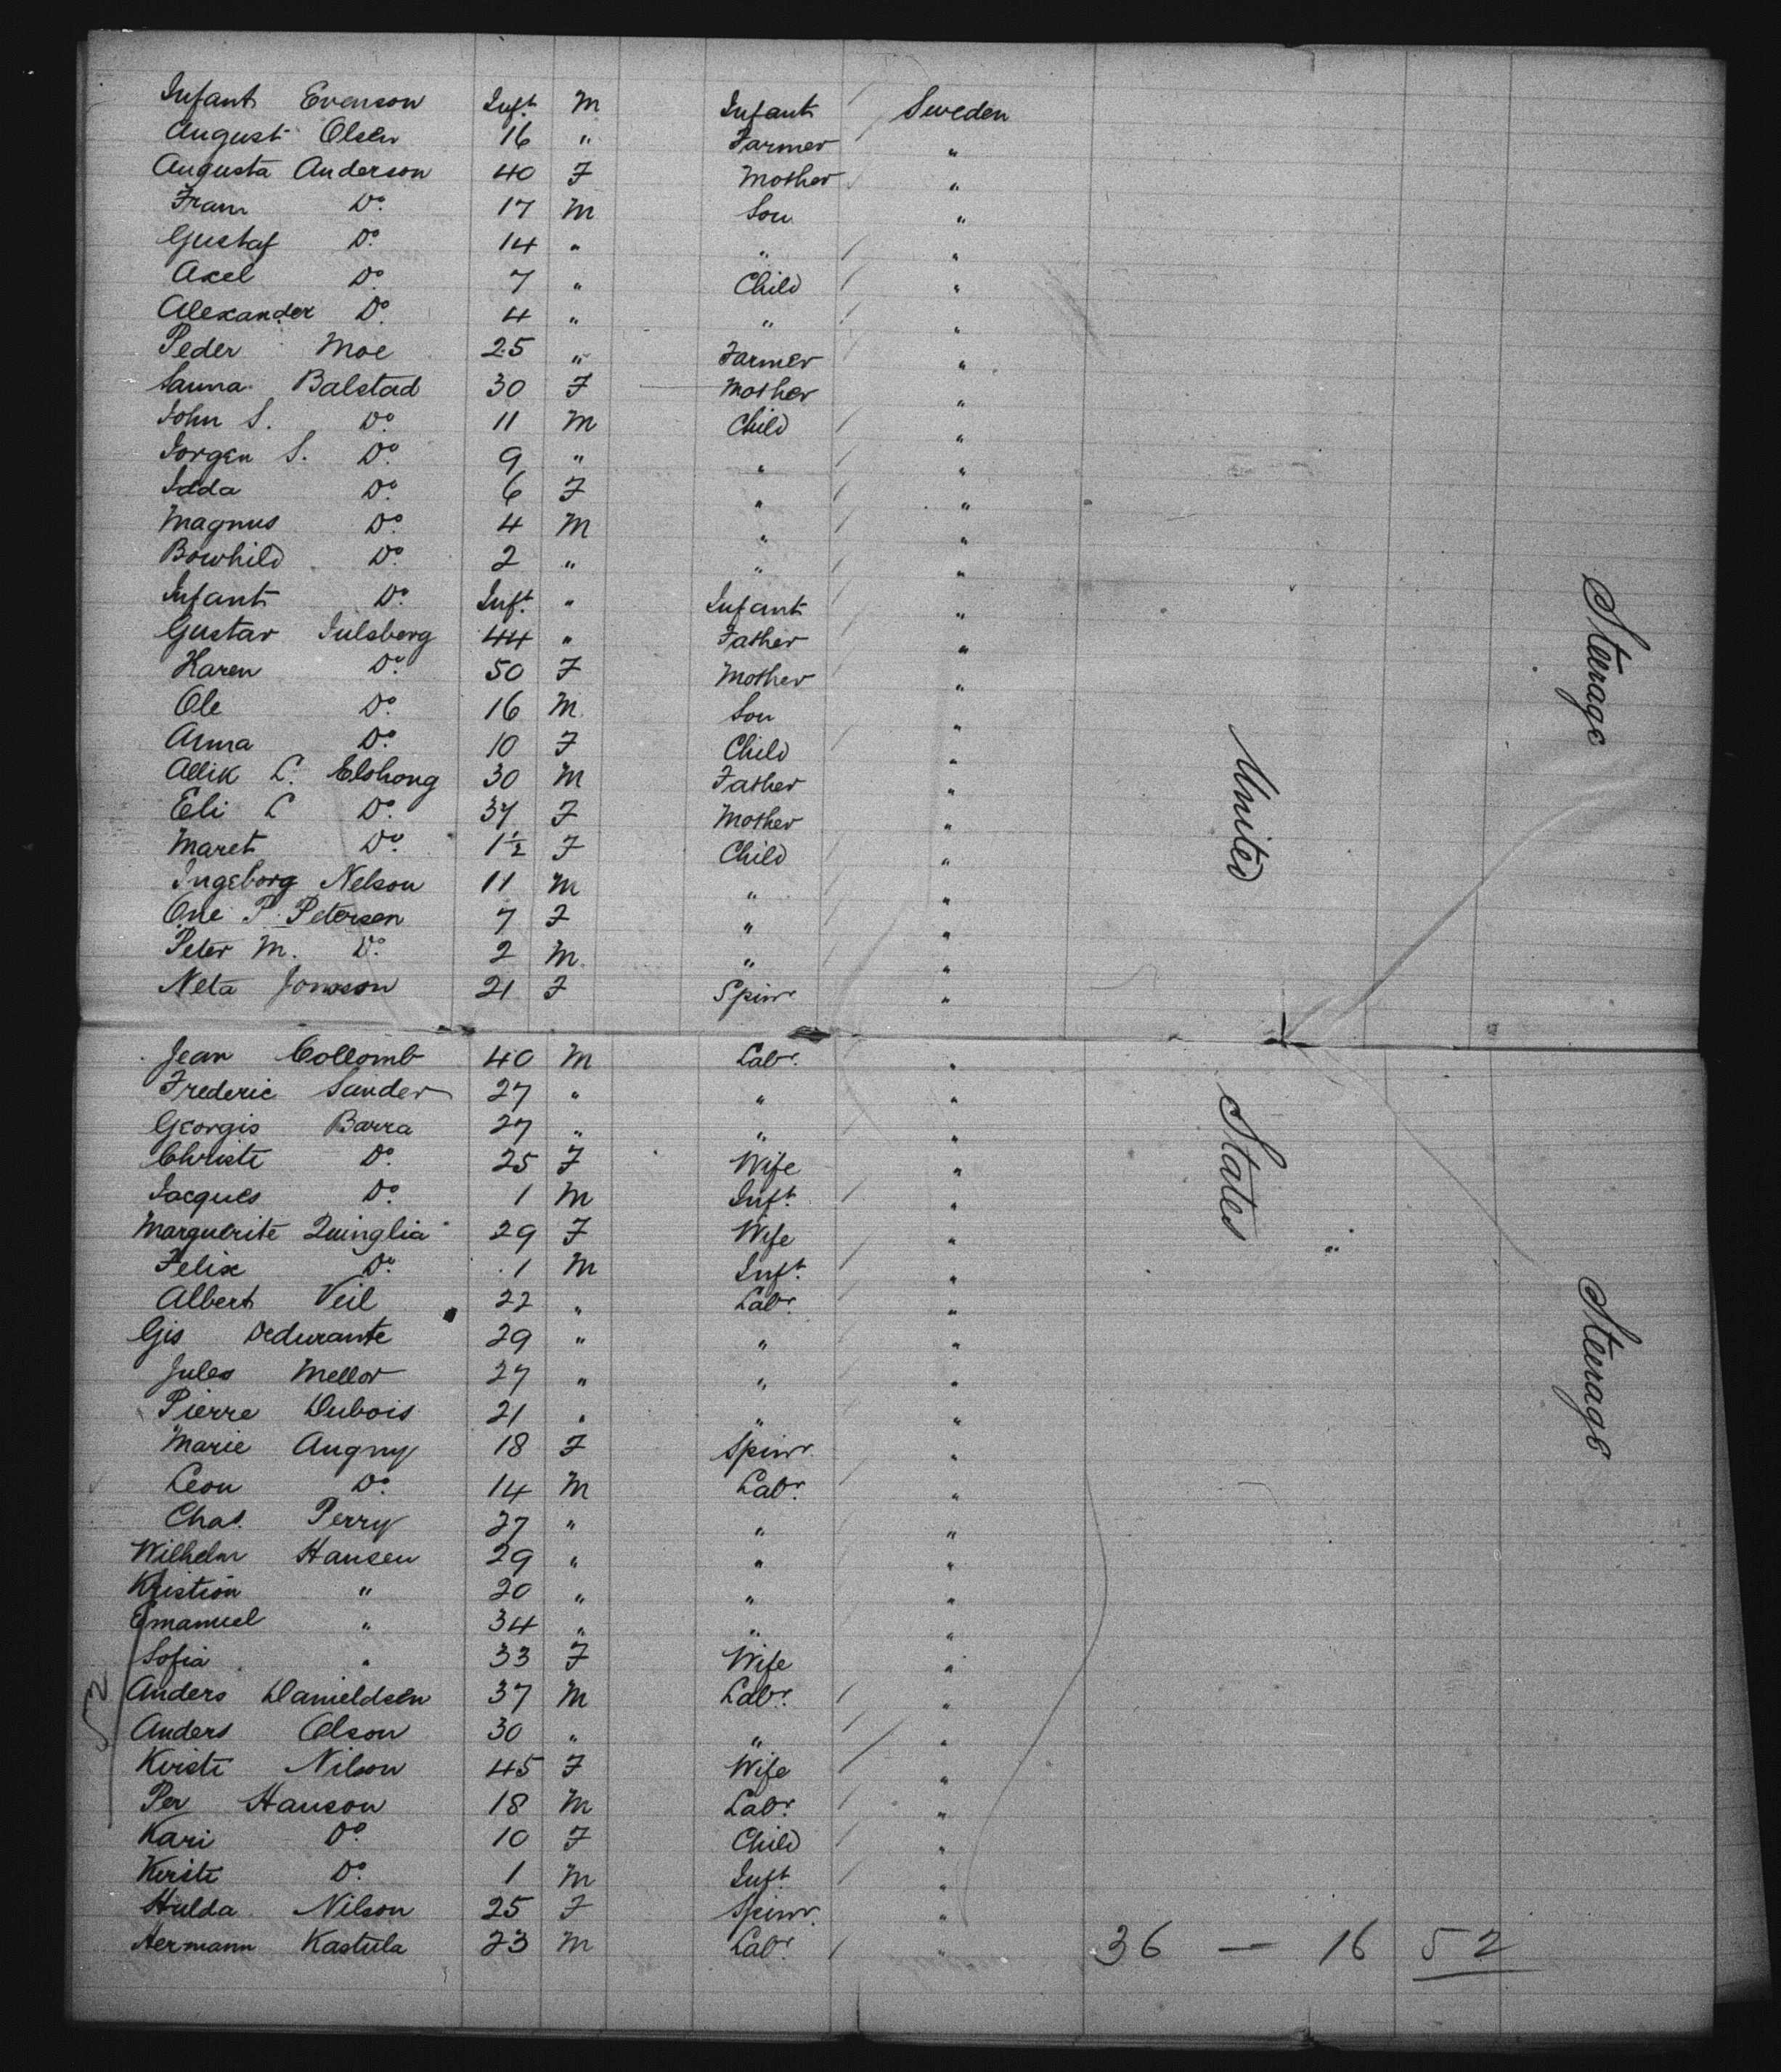 Infant Evenson Inft. M Infant Sweden
August Olsen 16 " Farmer "
Augusta Anderson 40 F Mother "
Fram Do. 17 M Son "
Gustaf Do. 14 " " "
Axel Do. 7 " Child "
Alexander Do. 4 " " "
Peder Moe 25 " Farmer "
Sanna Balstad 30 F Mother "
John S. Do. 11 M Child "
Jorgen S. Do. 9 " " "
Idda Do. 6 F " "
Magnus Do. 4 M " "
Bowhild Do. 2 " " "
Infant Do. Inft. " Infant "
Gustav Julsberg 44 " Father "
Karen Do. 50 F Mother "
Ole Do. 16 M Son "
Anna Do. 10 F Child "
Allik L. Elshong 30 M Father "
Eli L Do. 37 F Mother "
Maret Do. 1½ F Child "
Ingeborg Nelson 11 M " "
One P. Petersen 7 F " "
Peter M. Do. 2 M " "
Neta Jonsson 21 F Spinr "
Jean Collomb 40 M Labr. "
Frederic Sander 27 " " "
Georgis Barra 27 " " "
Christe Do. 25 F Wife "
Jacques Do. 1 M Inft. "
Marguerite Quinglia 29 F Wife "
Felix Do. 1 M Inft. "
Albert Veil 22 " Labr. "
Gis Dedurante 29 " " "
Jules Mellor 27 " " "
Pierre Dubois 21 " " "
Marie Augny 18 F Spinr. "
Leon Do. 14 M Labr. "
Chas. Perry 27 " " "
Wilhelm Hansen 29 " " "
Kristion " 20 " " "
Emanuel " 34 " " "
Sofia " 33 F Wife "
Anders Danieldsen 37 M Labr. "
Anders Olson 30 " " "
Kirste Nilson 45 F Wife "
Per Hanson 18 M Labr. "
Kari Do. 10 F Child "
Kerste Do. 1 M Inft. "
Hulda Nilson 25 F Spinr. "
Hermann Kastula 23 M Labr. "
36 — 16 52
United
States "
Steerage
Steerage
52